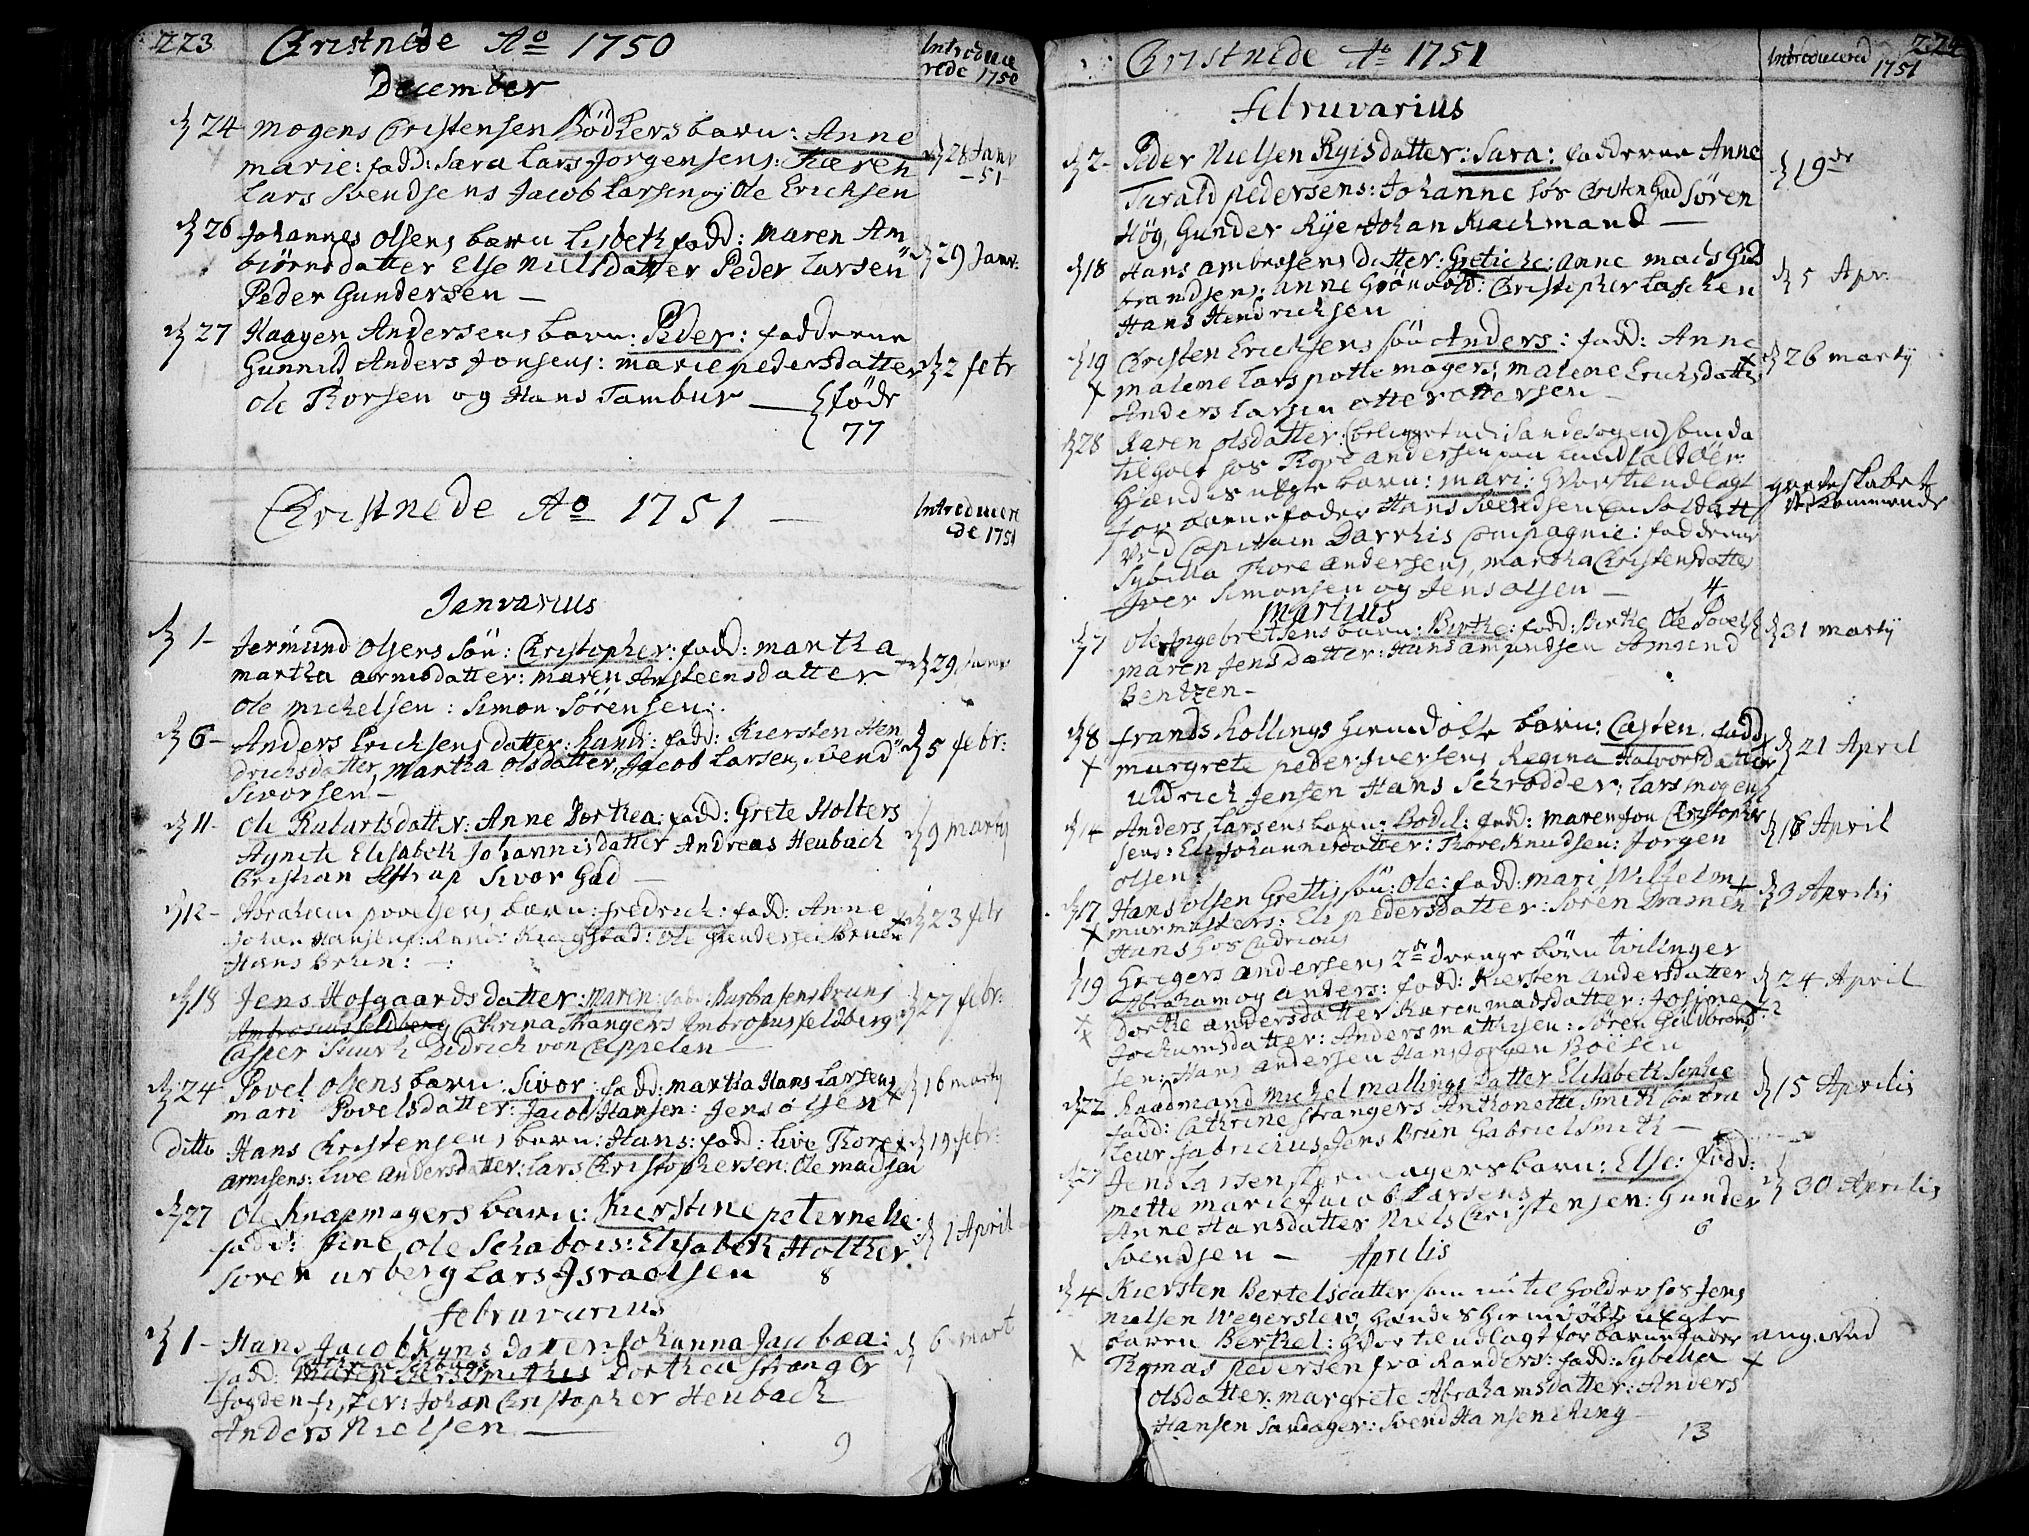 223 Christnede Ao 1750
Introduce
rede 1750
December
24 Mogens Christensen Bödkers barn: Anne
marie: fadd: Sara Lars Jorgensens: Karen
Lars Svendsens Jacob Larsen og Ole Ericksen
28 Janv
- 51
26 Johannes Olsens barn Lisbeth fadd: Maren Am
biörnsdatter Else Nielsdatter Peder Larsen
Peder Gundersen —
29 Janv:
27 Haagen Andersens barn: Peder: fadderne
Gunnild Anders Jonsens: marie pedersdatter
Ole Thorsen og Hans Tambur — födr
77
2 febr
Christnede Ao 1751 —
Introducere
de 1751
Janvarius
1 - Jermund Olsens Sön: Christopher: fadd: martha
martha arnesdatter: maren Ansteensdatter
Ole Michelsen: Simon Sörensen:
29 Janv
6 - Anders Ericksens datter: Randi: fadd: Kiersten Hen
dricksdatter, Martha Olsdatter, Jacob Larsen, Svend
Sivorsen —
5 febr:
11 - Ole Ruburts datter: Anne Dorthea: fadd: Grete Holters
Agnete Elisabeth Johannisdatter Andreas Heuback
Christian Astrup Sivor Gad —
9 marty
12 - Abraham povelsens barn: fredrich: fadd: Anne
Johan Hansens: Ole Gundersen
Hans Brun: —
23 febr
18 Jens Hofgaards datter: Maren: fadd: Barbra Jens Bruns
Cathrina Strangers Ambrosius feldberg
Casper Didrich von Cappelen —
27 febr:
24 Povel Olsens barn: Sivor: fadd: martha Hans Larsens
mari Povelsdatter: Jacob Hansen: Jens Olsen
16 marty
Ditto Hans Christensens barn: Hans: fadd: Live Thore
arnesens: Live Andersdatter: Lars Christophersen: Ole madsen
19 febr:
27 Ole Knapmagers barn: Kierstine peternelle
fadd: Jine Ole Schabois: Elisabeth Holther
Soren urberg Lars Israelsen 8
1 April
februvarius
1 - Hans Jacob Ryns datter Johanna Jacobæa:
fadd: Dorthea Stranger
fogden fister: Johan Christopher Heuback
Anders Nielsen —
9
6 mart
Christnede Ao 1751
Introducered
1751
224
februvarius
2 - Peder Nielsen Ryisdatter: Sara: fadderne Anne
Turald pedersens: Johanne hos Christen Gad Sören
Høg, Gunder Rye Johan Rachmand —
19de
18 Hans Ambrosens datter: Gretiche: Anne Mads Gul
brandsens: Anne Grönvold: Christopher Laschen
Hans Hendrichsen
5 Apr.
19 Christen Ericksens sön Anders: fadd: Anne
malene Lars pottemagers: malene Ericksdatter
Anders Larsen Otter Ottersen —
26 marty
28 Karen Olsdatter: (beliggende i Sandesogen)
tilholt hos Thore Andersen
Hendes uegte barn: mari: Hvortil udlagt
for barnefader Hans Svendsen En Soldatt
Ved Capitain Darrhis Compagnie: fadderne
Sybilla Thore Andersens, martha Christensdatter
Iver Simonsen og Jens Olsen — 4
grevskabet
Vedkommende
Martius
7 Ole Ingebretsens barn: Birthe: fadd: Birthe Ole Povels
Maren Jens datter: Hans Amundsen Amund
Bentzen —
31 marty
8 frands Hollings Hiemdöbte barn: Casten: fadd:
margrete peder Iversens Regina Halvorsdatter
Uldrich Jensen Hans Schrödder: Lars mogens
21 April
14 Anders Larsens barn: Bodil: fadd: maren Jon Christopher
sens: Eli Johannisdatter: Thore Knudsen: Jorgen
Olsen:
18 April
17 Hans Olsen Grettis sön: Ole: fadd: mari Wilhelm
murmesters: Eli pedersdatter: Sören Dramen
Hans hos Cudrious
9 Aprilis
19 Gregers Andersens 2de drenge börn tvilinger
Abraham og Anders: fadd: Kiersten Andersdatter
Dorthe Andersdatter Karen Madsdatter: Josine
Jochumsdatter: Anders Mathisen: Sören Guldbrand
sen: Hans Andersen Hans Jorgen Boësen
24 April
22 Raadmand Michel Mallings Datter Elisabeth Sophie
fadd: Cathrine Strangers Anthonette Smith Con tra
leur fabricius Jens Brun Gabriel Smith —
15 Aprilis
27 Jens Larsen magers barn: Else: fadd:
mette marie Jacob Larsens
Anne Hansdatter Niels Christensen: Gunder
Svendsen — 6
30 Aprilis
Aprilis
4 Kiersten Bertelsdatter som nu til holder hos Jens
Nielsen Wegersley hendis hiemdöbte uegte
barn Berthel: Hvortil udlagt for barnefader
Thomas pedersen fra Randers: fadd: Sybilla
Olsdatter: margrete Abrahamsdatter: Anders
Hansen Saudager: Svend Hansen Ring
13